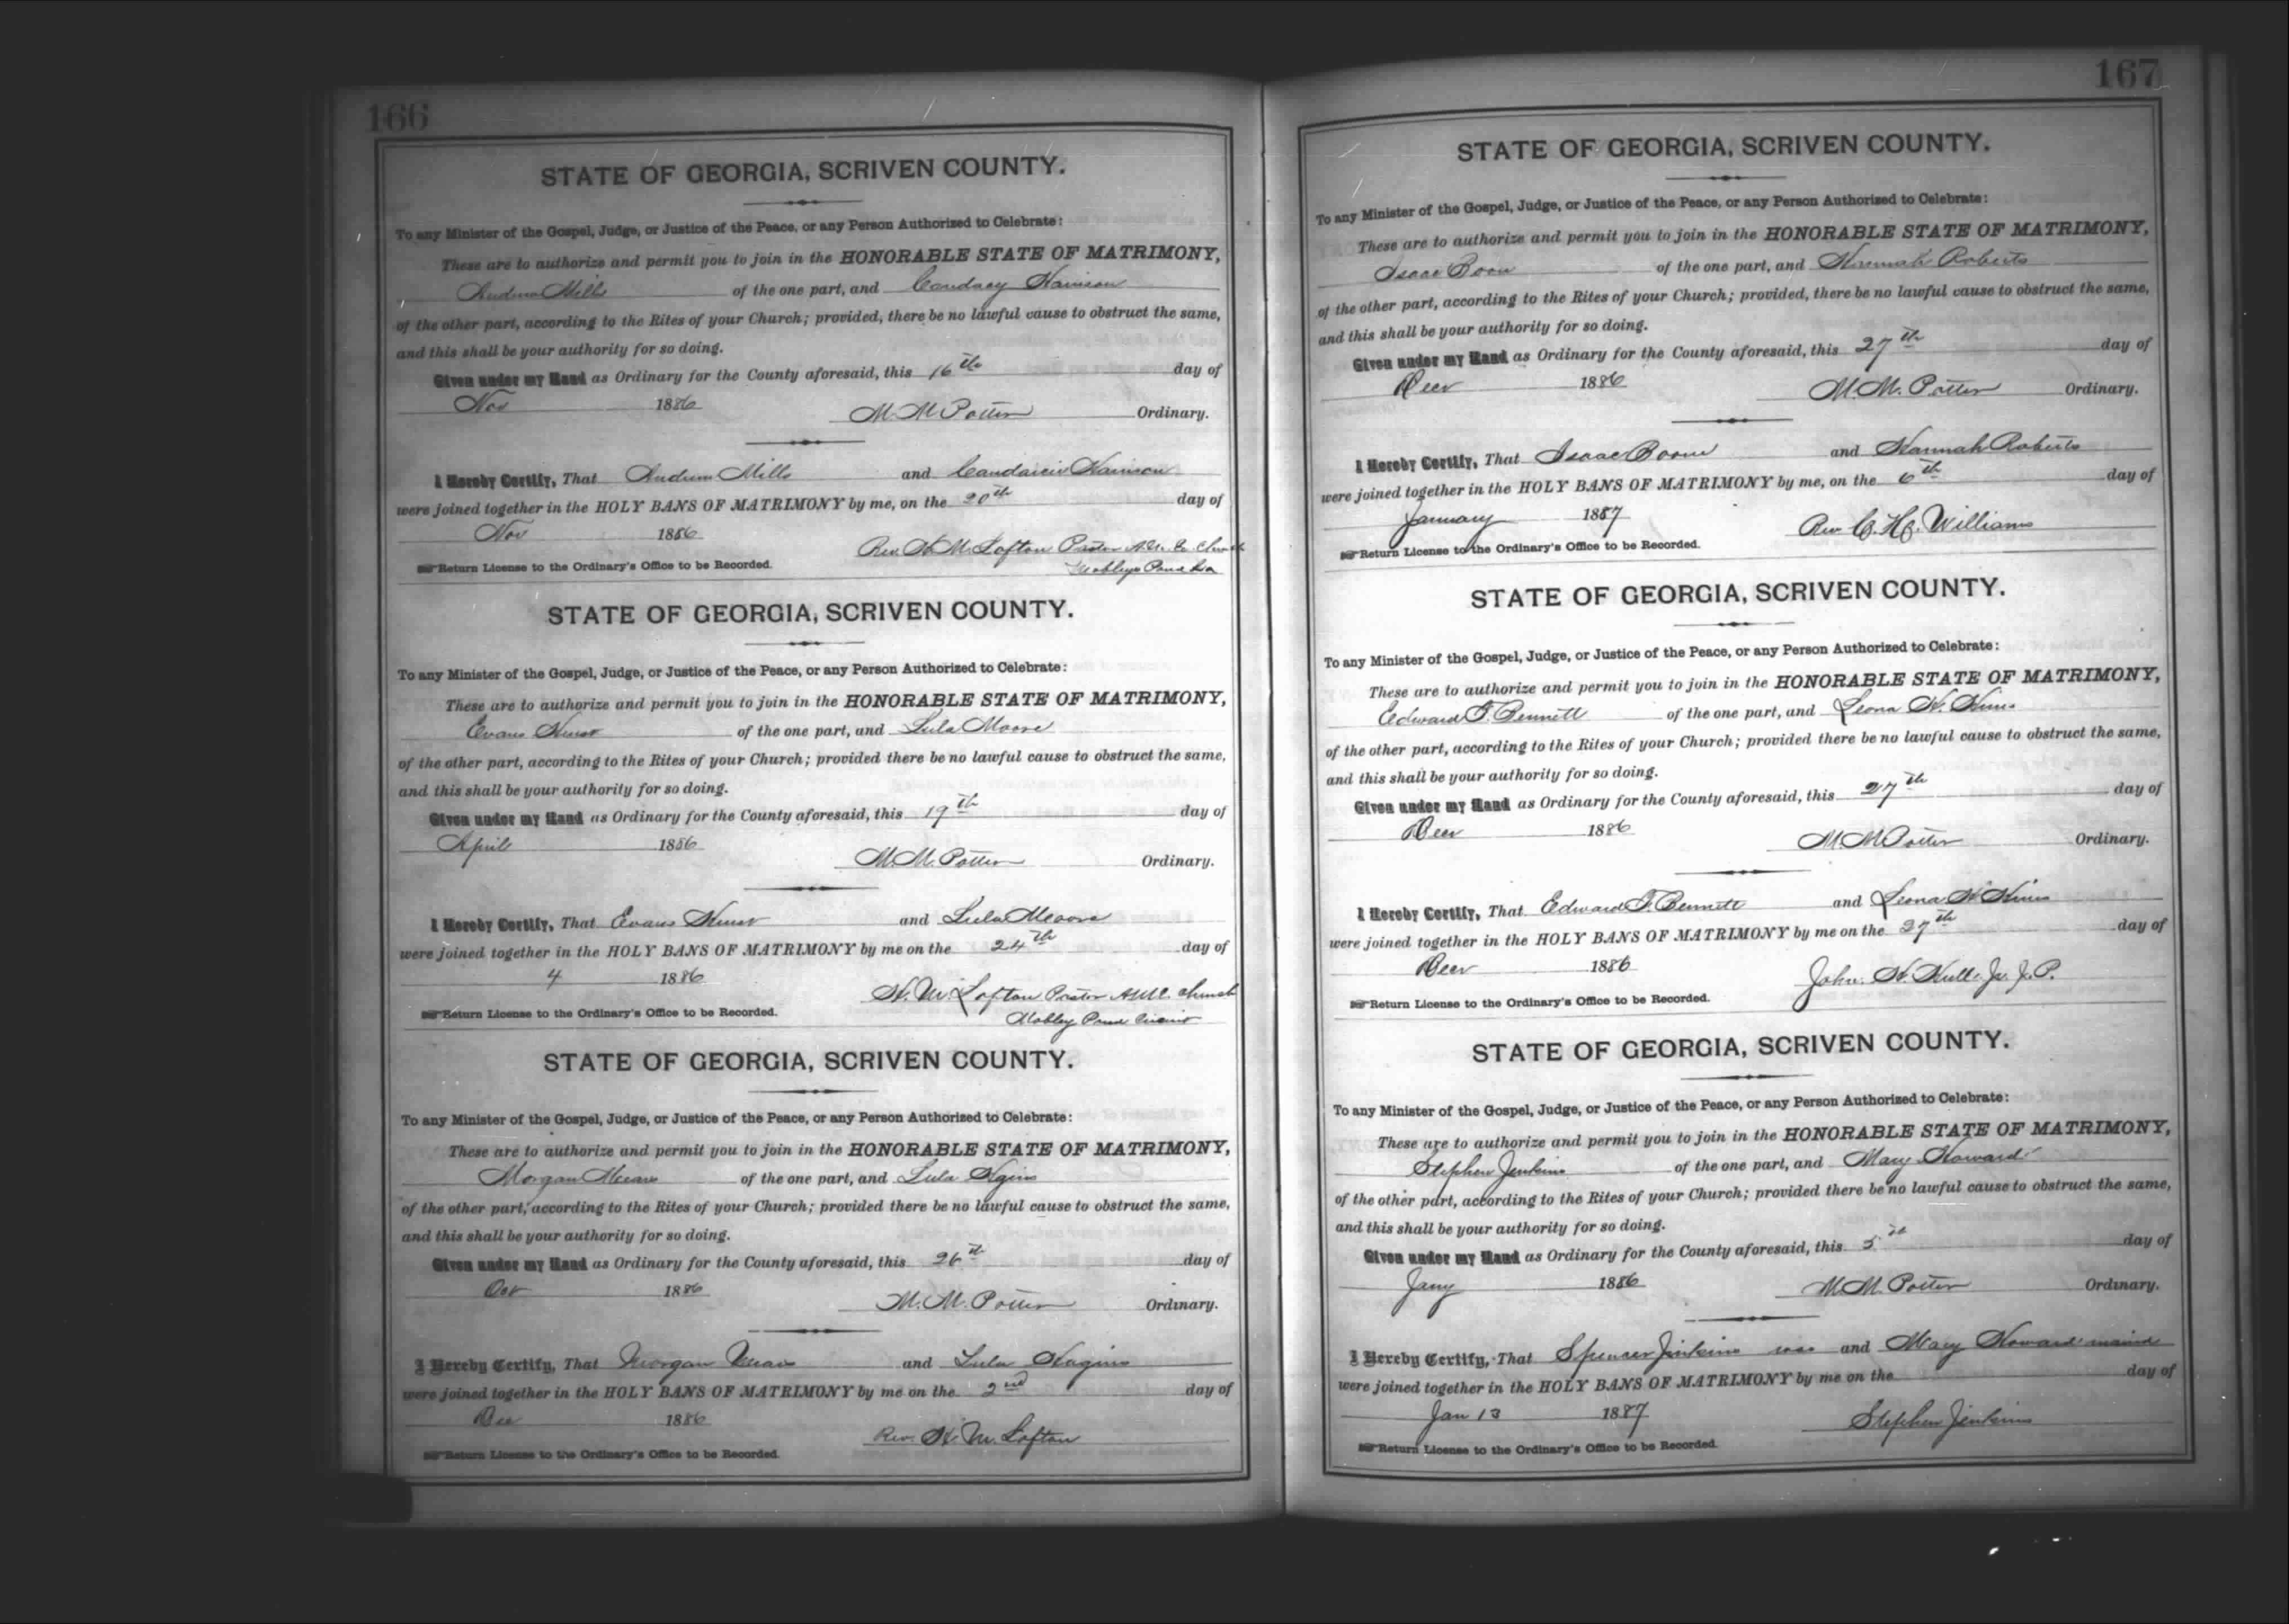 166
STATE OF GEORGIA, SCRIVEN COUNTY.
To any Minister of the Gospel, Judge, or Justice of the Peace, or any Person Authorized to Celebrate:
These are to authorize and permit you to join in the HONORABLE STATE OF MATRIMONY,
Mills of the one part, and Candacy
of the other part, according to the Rites of your Church; provided, there be no lawful cause to obstruct the same,
and this shall be your authority for so doing.
Given under my Hand as Ordinary for the County aforesaid, this 16th day of
Nov 1886 M. M. Potter Ordinary.
I Hereby Certify, That Mills and
were joined together in the HOLY BANS OF MATRIMONY by me, on the 20th day of
Nov 1886 Rev. H. M. Lofton Pastor A.M.E. Church
Return License to the Ordinary's Office to be Recorded. Mobleys Pond Ga
STATE OF GEORGIA, SCRIVEN COUNTY.
To any Minister of the Gospel, Judge, or Justice of the Peace, or any Person Authorized to Celebrate:
These are to authorize and permit you to join in the HONORABLE STATE OF MATRIMONY,
Evans Hurst of the one part, and Lula Moore
of the other part, according to the Rites of your Church; provided there be no lawful cause to obstruct the same,
and this shall be your authority for so doing.
Given under my Hand as Ordinary for the County aforesaid, this 19th day of
April 1886 M. M. Potter Ordinary.
I Hereby Certify, That Evans Hurst and Lula Moore
were joined together in the HOLY BANS OF MATRIMONY by me on the 24th day of
4 1886 H. M. Lofton Pastor A.M.E. Church
Return License to the Ordinary's Office to be Recorded. Mobley Pond
STATE OF GEORGIA, SCRIVEN COUNTY.
To any Minister of the Gospel, Judge, or Justice of the Peace, or any Person Authorized to Celebrate:
These are to authorize and permit you to join in the HONORABLE STATE OF MATRIMONY,
Morgan of the one part, and Lula
of the other part, according to the Rites of your Church; provided there be no lawful cause to obstruct the same,
and this shall be your authority for so doing.
Given under my Hand as Ordinary for the County aforesaid, this 26th day of
Oct 1886 M. M. Potter Ordinary.
I Hereby Certify, That Morgan and Lula Hagins
were joined together in the HOLY BANS OF MATRIMONY by me on the 2nd day of
Dec 1886 Rev. H. M. Lofton
Return License to the Ordinary's Office to be Recorded.
167
STATE OF GEORGIA, SCRIVEN COUNTY.
To any Minister of the Gospel, Judge, or Justice of the Peace, or any Person Authorized to Celebrate:
These are to authorize and permit you to join in the HONORABLE STATE OF MATRIMONY,
Isaac Boon of the one part, and Hannah Roberts
of the other part, according to the Rites of your Church; provided, there be no lawful cause to obstruct the same,
and this shall be your authority for so doing.
Given under my Hand as Ordinary for the County aforesaid, this 27th day of
Decr 1886 M. M. Potter Ordinary.
I Hereby Certify, That Isaac Boone and Hannah Roberts
were joined together in the HOLY BANS OF MATRIMONY by me, on the 6th day of
January 1887 Rev C. H. Williams
Return License to the Ordinary's Office to be Recorded.
STATE OF GEORGIA, SCRIVEN COUNTY.
To any Minister of the Gospel, Judge, or Justice of the Peace, or any Person Authorized to Celebrate:
These are to authorize and permit you to join in the HONORABLE STATE OF MATRIMONY,
Edward F. Bennett of the one part, and Leona H. Hines
of the other part, according to the Rites of your Church; provided there be no lawful cause to obstruct the same,
and this shall be your authority for so doing.
Given under my Hand as Ordinary for the County aforesaid, this 27th day of
Decr 1886 M. M. Potter Ordinary.
I Hereby Certify, That Edward F. Bennett and Leona H Hines
were joined together in the HOLY BANS OF MATRIMONY by me on the 27th day of
Decr 1886 John H. Hull Jr. J.P.
Return License to the Ordinary's Office to be Recorded.
STATE OF GEORGIA, SCRIVEN COUNTY.
To any Minister of the Gospel, Judge, or Justice of the Peace, or any Person Authorized to Celebrate:
These are to authorize and permit you to join in the HONORABLE STATE OF MATRIMONY,
Stephen Jenkins of the one part, and Mary Howard
of the other part, according to the Rites of your Church; provided there be no lawful cause to obstruct the same,
and this shall be your authority for so doing.
Given under my Hand as Ordinary for the County aforesaid, this 5th day of
Jany 1886 M. M. Potter Ordinary.
I Hereby Certify, That Spencer Jinkins was and Mary Howard
were joined together in the HOLY BANS OF MATRIMONY by me on the day of
Jan 13 1887 Stephen Jenkins
Return License to the Ordinary's Office to be Recorded.